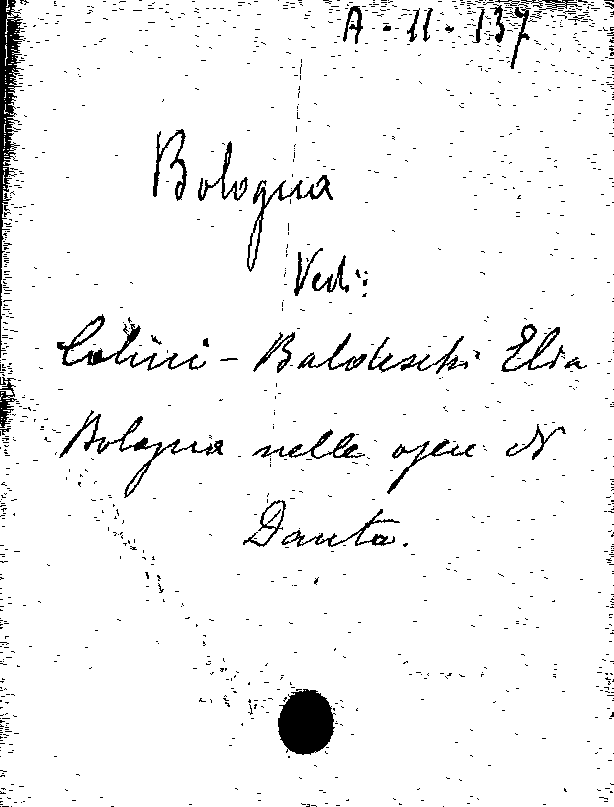 A - 11 - 137
Bologna
Vedi:
Colini - Baldeschi Elia
Bologna nelle opere di
Dante.